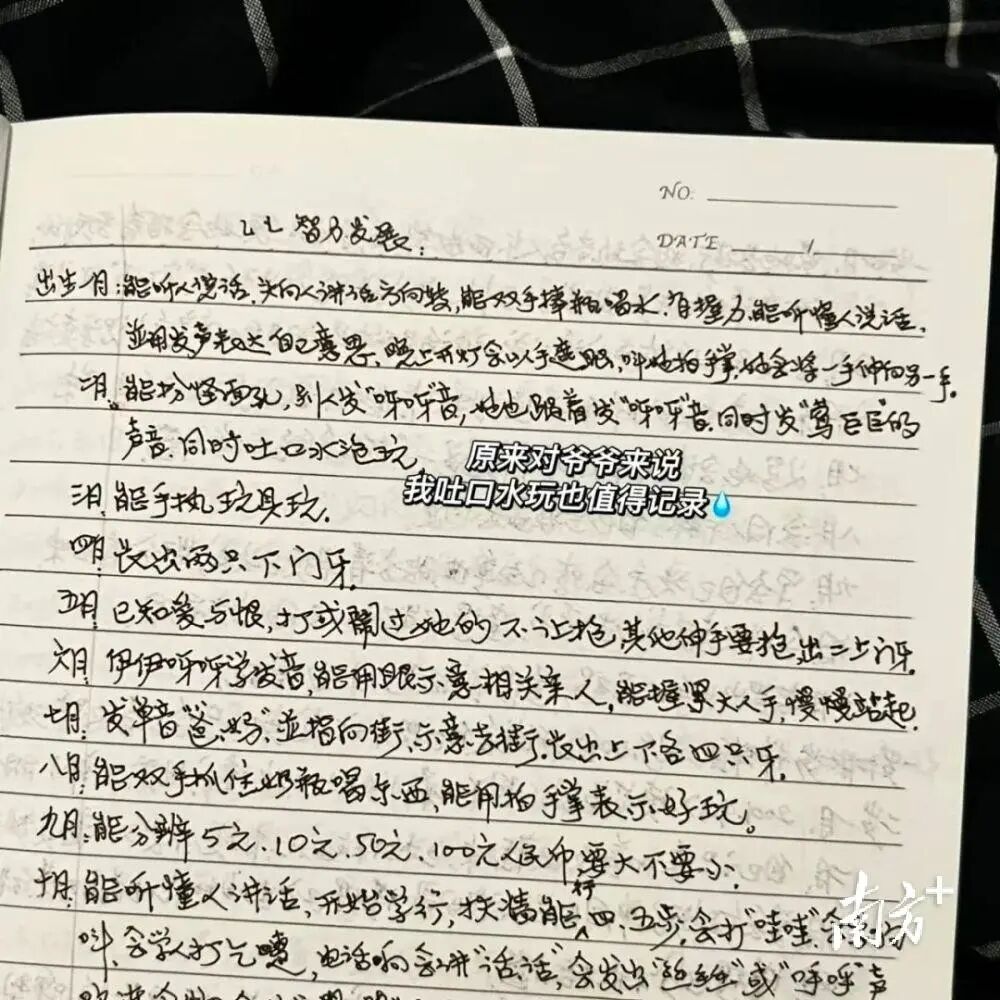 NO:
DATE /
智力发展:
出生一月:能听人说话,头向人讲话方向转,能双手捧瓶喝水.有握力.能听懂人说话.
並用发声表达自己意思,晚上开灯会以手遮眼,叫她拍手掌,她会将一手伸向另一手。
二月:能扮怪面孔,别人发“呀呀”音,她也跟着发“呀呀”音.同时发“莺巨巨”的
声音.同时吐口水泡玩.
原来对爷爷来说
我吐口水玩也值得记录
三月:能手执玩具玩.
四月:长出两只下门牙.
五月:已知爱与恨,打或闹过她的不让抱,其他伸手要抱,出二上门牙.
六月:伊伊呀呀学发音,能用眼示意相关亲人,能握紧大人手,慢慢站起.
七月:发单音“爸、妈”,並指向街,示意去街,长出上下各四只牙.
八月:能双手抓住奶瓶喝东西,能用拍手掌表示好玩。
九月:能分辨5元、10元、50元、100元人民币要大不要小.
十月:能听懂人讲话,开始学行,扶墙能行四、五步,会打“哇哇”
叫,会学人打乞嚏,电话响会讲“话话”,会发出“丝丝”或“呼呼”声
南方+